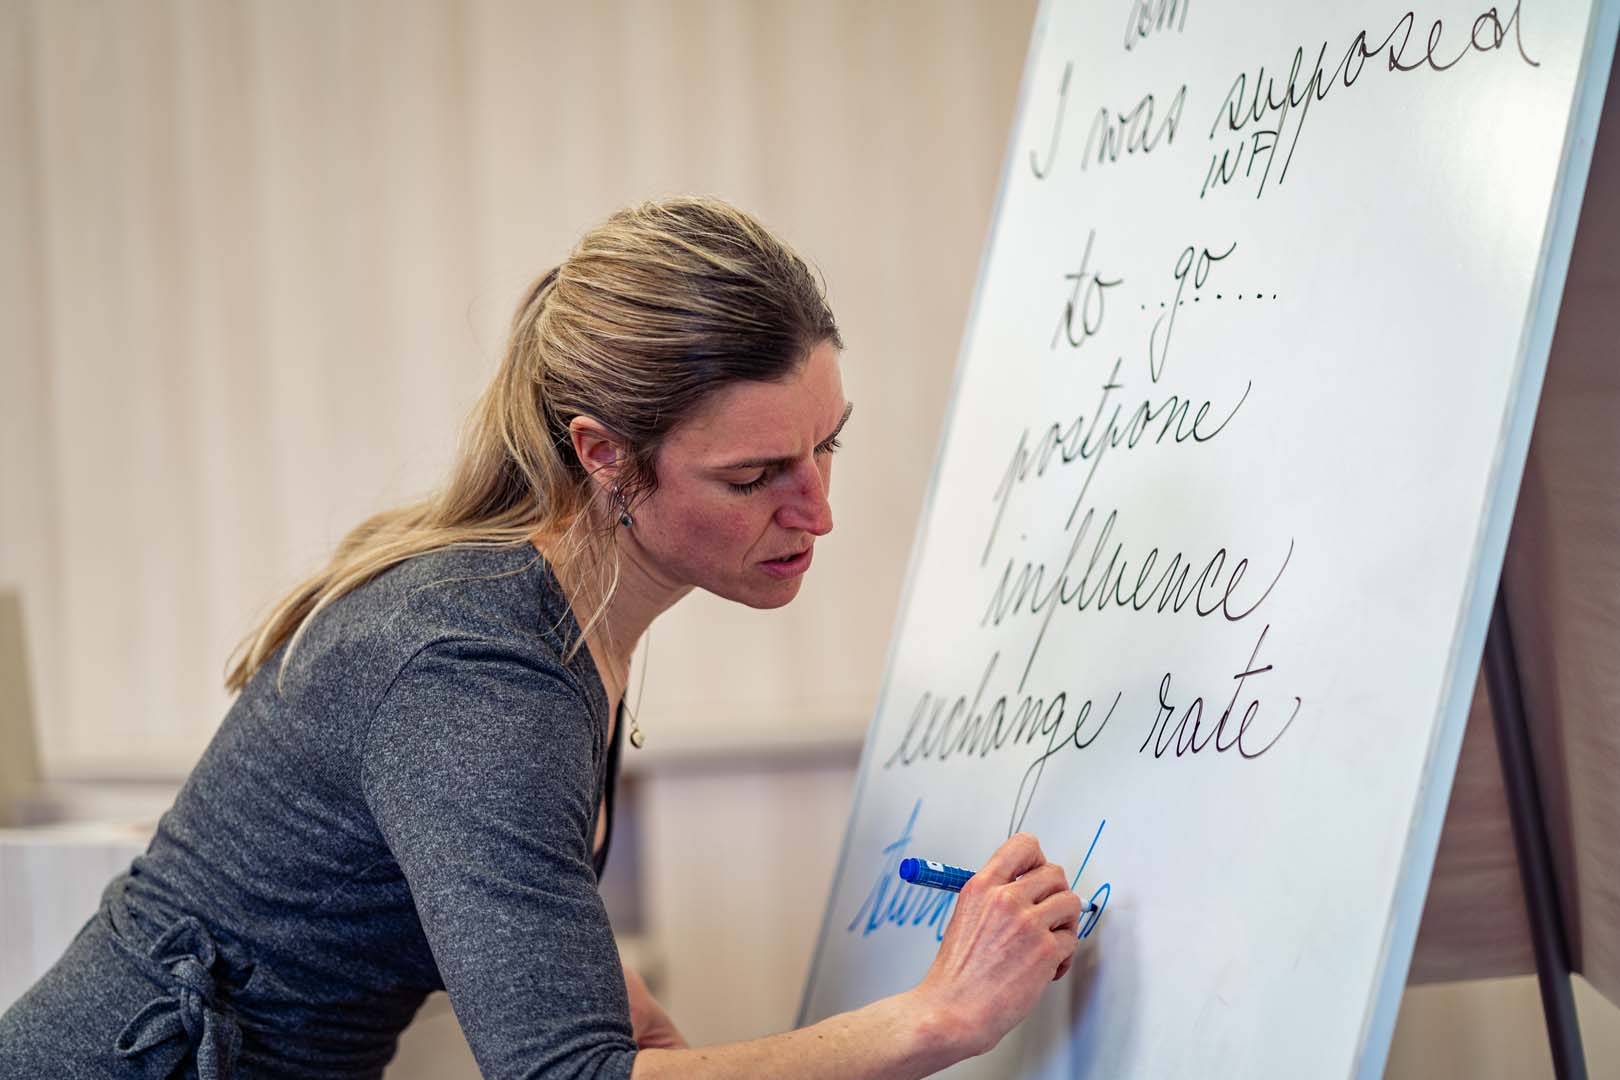 am
I was supposed
INF
to ..go......
postpone
influence
exchange rate
turn